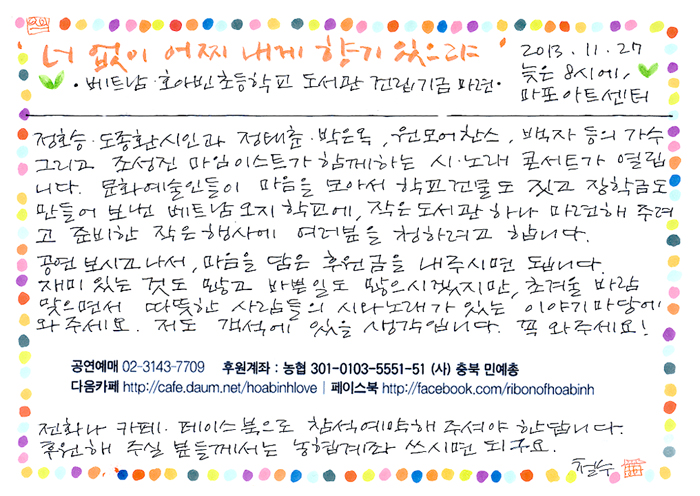 '너 없이 어찌 내게 향기 있으랴'
2013. 11. 27
늦은 8시에,
마포아트센터
·베트남·호아빈초등학교 도서관 건립기금 마련·
정호승·도종환시인과 정태춘·박은옥, 원모어찬스, 백자 등의 가수
그리고 조성진 마임이스트가 함께하는 시·노래 콘서트가 열립
니다. 문화예술인들이 마음을 모아서 학교건물도 짓고 장학금도
만들어 보내온 베트남 오지학교에, 작은 도서관 하나 마련해 주려
고 준비한 작은 행사에 여러분을 청하려고 합니다.
공연 보시고나서, 마음을 담은 후원금을 내주시면 됩니다.
재미 있는 것도 많고 바쁜일도 많으시겠지만, 초겨울 바람
맞으면서 따뜻한 사람들의 시와노래가 있는 이야기마당에
와주세요. 저도 객석에 있을 생각입니다. 꼭 와주세요!
공연예매 02-3143-7709 후원계좌 : 농협 301-0103-5551-51 (사) 충북 민예총
다음카페 http://cafe.daum.net/hoabinhlove | 페이스북 http://facebook.com/ribonofhoabinh
전화나 카페·페이스북으로 참석예약해 주셔야 한답니다.
후원해 주실 분들께서는 농협계좌 쓰시면 되구요.
철수